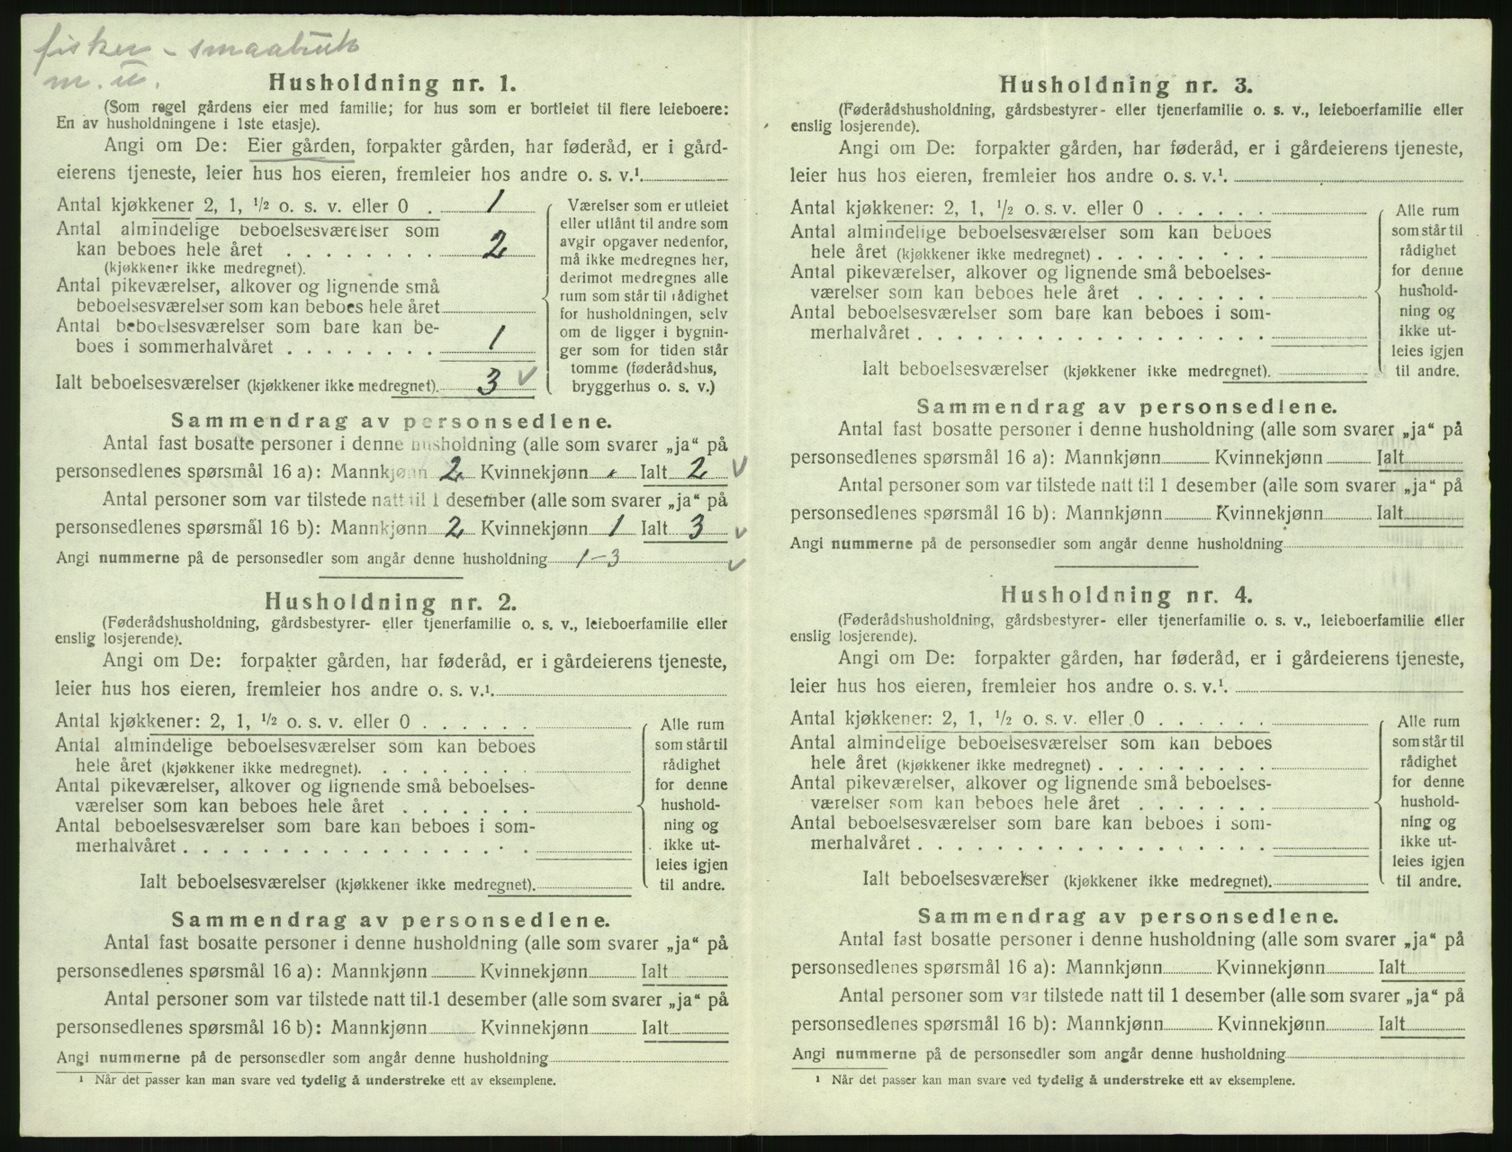 fisker - smaabruk
m. u.
Husholdning nr. 1.
(Som regel gårdens eier med familie; for hus som er bortleiet til flere leieboere:
En av husholdningene i 1ste etasje).
Angi om De: Eier gården, forpakter gården, har føderåd, er i gård-
eierens tjeneste, leier hus hos eieren, fremleier hos andre o. s. v.¹
Antal kjøkkener 2, 1, ½ o. s. v. eller 0 . 1
Antal almindelige beboelsesværelser som
kan beboes hele året . . . . . . . . 2
(kjøkkener ikke medregnet).
Antal pikeværelser, alkover og lignende små
beboelsesværelser som kan beboes hele året
Antal beboelsesværelser som bare kan be-
boes i sommerhalvåret . . . . . . . 1
Ialt beboelsesværelser (kjøkkener ikke medregnet). 3 ✓
Værelser som er utleiet
eller utlånt til andre som
avgir opgaver nedenfor,
må ikke medregnes her,
derimot medregnes alle
rum som står til rådighet
for husholdningen, selv
om de ligger i bygnin-
ger som for tiden står
tomme (føderådshus,
bryggerhus o. s. v.)
Sammendrag av personsedlene.
Antal fast bosatte personer i denne husholdning (alle som svarer „ja“ på
personsedlenes spørsmål 16 a): Mannkjønn 2 Kvinnekjønn - Ialt 2 ✓
Antal personer som var tilstede natt til 1 desember (alle som svarer „ja“ på
personsedlenes spørsmål 16 b): Mannkjønn 2 Kvinnekjønn 1 Ialt 3 ✓
Angi nummerne på de personsedler som angår denne husholdning 1-3 ✓
Husholdning nr. 2.
(Føderådshusholdning, gårdsbestyrer- eller tjenerfamilie o. s. v., leieboerfamilie eller
enslig losjerende).
Angi om De: forpakter gården, har føderåd, er i gårdeierens tjeneste,
leier hus hos eieren, fremleier hos andre o. s. v.¹.
Antal kjøkkener: 2, 1, ½ o. s. v. eller 0 . . . . . .
Antal almindelige beboelsesværelser som kan beboes
hele året (kjøkkener ikke medregnet). . . . . . . . .
Antal pikeværelser, alkover og lignende små beboelses-
værelser som kan beboes hele året . . . . . . .
Antal beboelsesværelser som bare kan beboes i som-
merhalvåret . . . . . . . . . . . . . . .
Ialt beboelsesværelser (kjøkkener ikke medregnet).
Alle rum
som står til
rådighet
for denne
hushold-
ning og
ikke ut-
leies igjen
til andre.
Sammendrag av personsedlene.
Antal fast bosatte personer i denne husholdning (alle som svarer „ja“ på
personsedlenes spørsmål 16 a): Mannkjønn Kvinnekjønn Ialt
Antal personer som var tilstede natt til 1 desember (alle som svarer „ja“ på
personsedlenes spørsmål 16 b): Mannkjønn Kvinnekjønn Ialt
Angi nummerne på de personsedler som angår denne husholdning
¹ Når det passer kan man svare ved tydelig å understreke ett av eksemplene.
Husholdning nr. 3.
(Føderådshusholdning, gårdsbestyrer- eller tjenerfamilie o. s. v., leieboerfamilie eller
enslig losjerende).
Angi om De: forpakter gården, har føderåd, er i gårdeierens tjeneste,
leier hus hos eieren, fremleier hos andre o. s. v.¹.
Antal kjøkkener: 2, 1, ½ o. s. v. eller 0 . . . . . .
Antal almindelige beboelsesværelser som kan beboes
hele året (kjøkkener ikke medregnet) . . . . . . . . .
Antal pikeværelser, alkover og lignende små beboelses-
værelser som kan beboes hele året . . . . . . .
Antal beboelsesværelser som bare kan beboes i som-
merhalvåret . . . . . . . . . . . . . . .
Ialt beboelsesværelser (kjøkkener ikke medregnet).
Alle rum
som står til
rådighet
for denne
hushold-
ning og
ikke ut-
leies igjen
til andre.
Sammendrag av personsedlene.
Antal fast bosatte personer i denne husholdning (alle som svarer „ja“ på
personsedlenes spørsmål 16 a): Mannkjønn Kvinnekjønn Ialt
Antal personer som var tilstede natt til 1 desember (alle som svarer „ja“ på
personsedlenes spørsmål 16 b): Mannkjønn Kvinnekjønn Ialt
Angi nummerne på de personsedler som angår denne husholdning
Husholdning nr. 4.
(Føderådshusholdning, gårdsbestyrer- eller tjenerfamilie o. s. v., leieboerfamilie eller
enslig losjerende).
Angi om De: forpakter gården, har føderåd, er i gårdeierens tjeneste,
leier hus hos eieren, fremleier hos andre o. s. v.¹.
Antal kjøkkener: 2, 1, ½ o. s. v. eller 0 . . . . . .
Antal almindelige beboelsesværelser som kan beboes
hele året (kjøkkener ikke medregnet) . . . . . . . . .
Antal pikeværelser, alkover og lignende små beboelses-
værelser som kan beboes hele året . . . . . . .
Antal beboelsesværelser som bare kan beboes i som-
merhalvåret . . . . . . . . . . . . . . .
Ialt beboelsesværelser (kjøkkener ikke medregnet).
Alle rum
som står til
rådighet
for denne
hushold-
ning og
ikke ut-
leies igjen
til andre.
Sammendrag av personsedlene.
Antal fast bosatte personer i denne husholdning (alle som svarer „ja“ på
personsedlenes spørsmål 16 a): Mannkjønn Kvinnekjønn Ialt
Antal personer som var tilstede natt til 1 desember (alle som svarer „ja“ på
personsedlenes spørsmål 16 b): Mannkjønn Kvinnekjønn Ialt
Angi nummerne på de personsedler som angår denne husholdning
¹ Når det passer kan man svare ved tydelig å understreke ett av eksemplene.